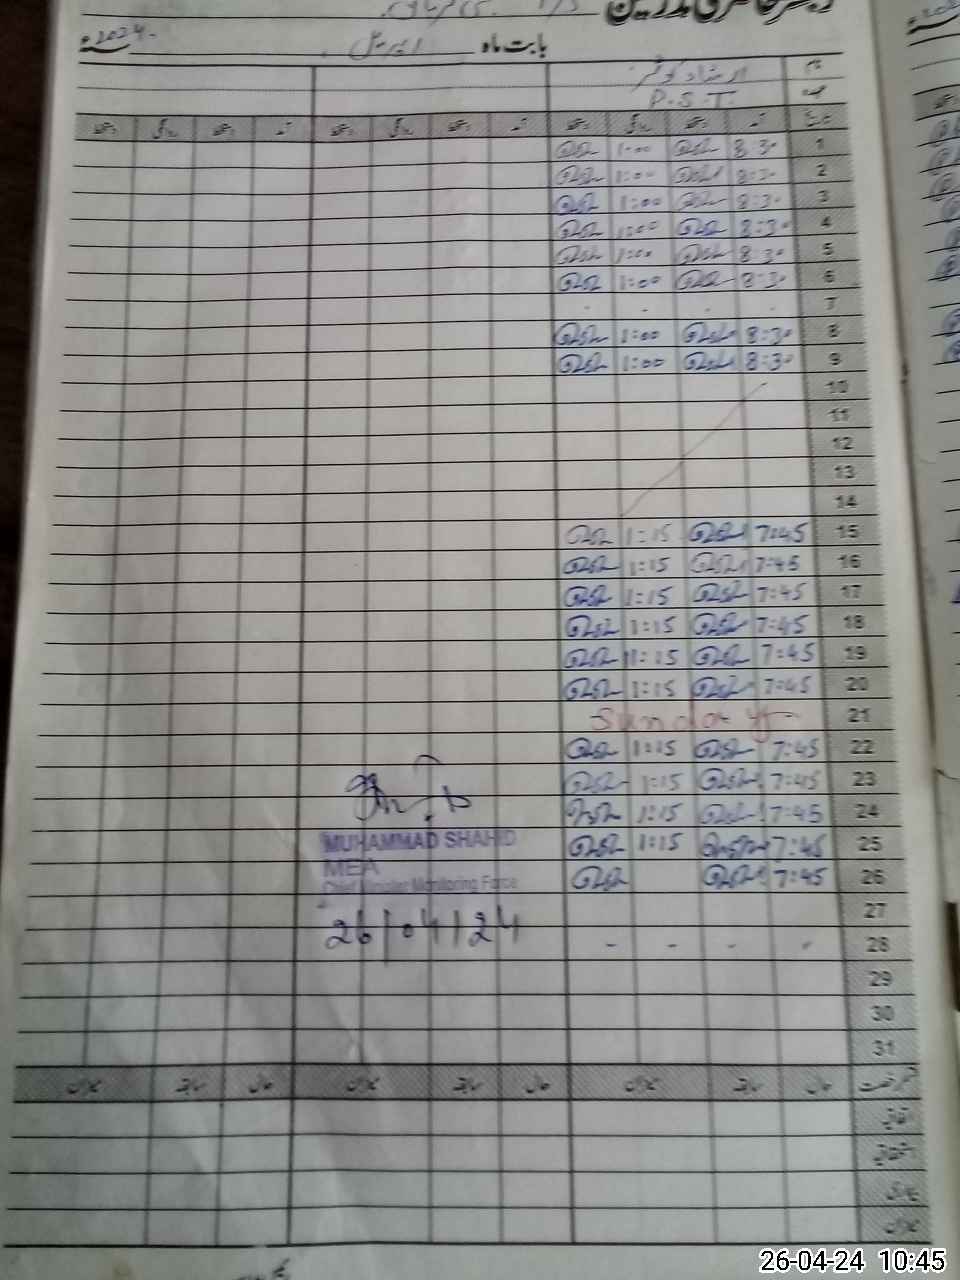 رجسٹر حاضری مدرسین
بابت ماہ اپریل 2024ء
نام ارشاد کوثر
عہدہ P.S.T.
تاریخ آمد دستخط روانگی دستخط آمد دستخط روانگی دستخط
1 8:30 1:00
2 8:30 1:00
3 8:30 1:00
4 8:30 1:00
5 8:30 1:00
6 8:30 1:00
7 - - - -
8 8:30 1:00
9 8:30 1:00
10
11
12
13
14
15 7:45 1:15
16 7:45 1:15
17 7:45 1:15
18 7:45 1:15
19 7:45 1:15
20 7:45 1:15
21 Sunday
22 7:45 1:15
23 7:45 1:15
24 7:45 1:15
25 7:45 1:15
26 7:45
27
28 - - - -
29
30
31
MUHAMMAD SHAHID
MEA
Chief Minister Monitoring Force
26/04/24
حال سابقہ میزان حال سابقہ میزان
اتفاقیہ
استحقاقیہ
بیماری
میزان
26-04-24 10:45